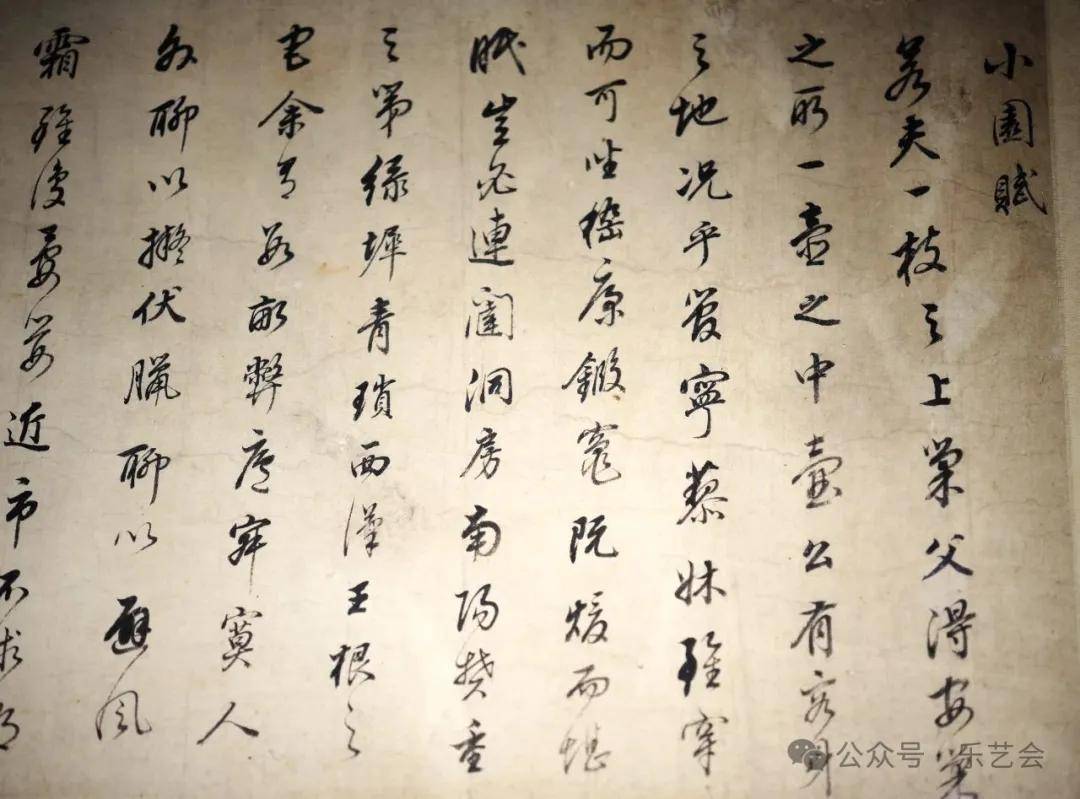 小園賦
若夫一枝之上巢父得安巢
之所一壺之中壺公有容身
之地况乎管寧藜牀雖穿
而可坐嵇康鍛竈既煖而堪
眠豈必連闥洞房南陽樊重
之第綠墀青瑣西漢王根之
宅余有數畝弊廬寂寞人
外聊以擬伏臘聊以避風
霜雖復晏嬰近市不求朝
公众号 乐艺会